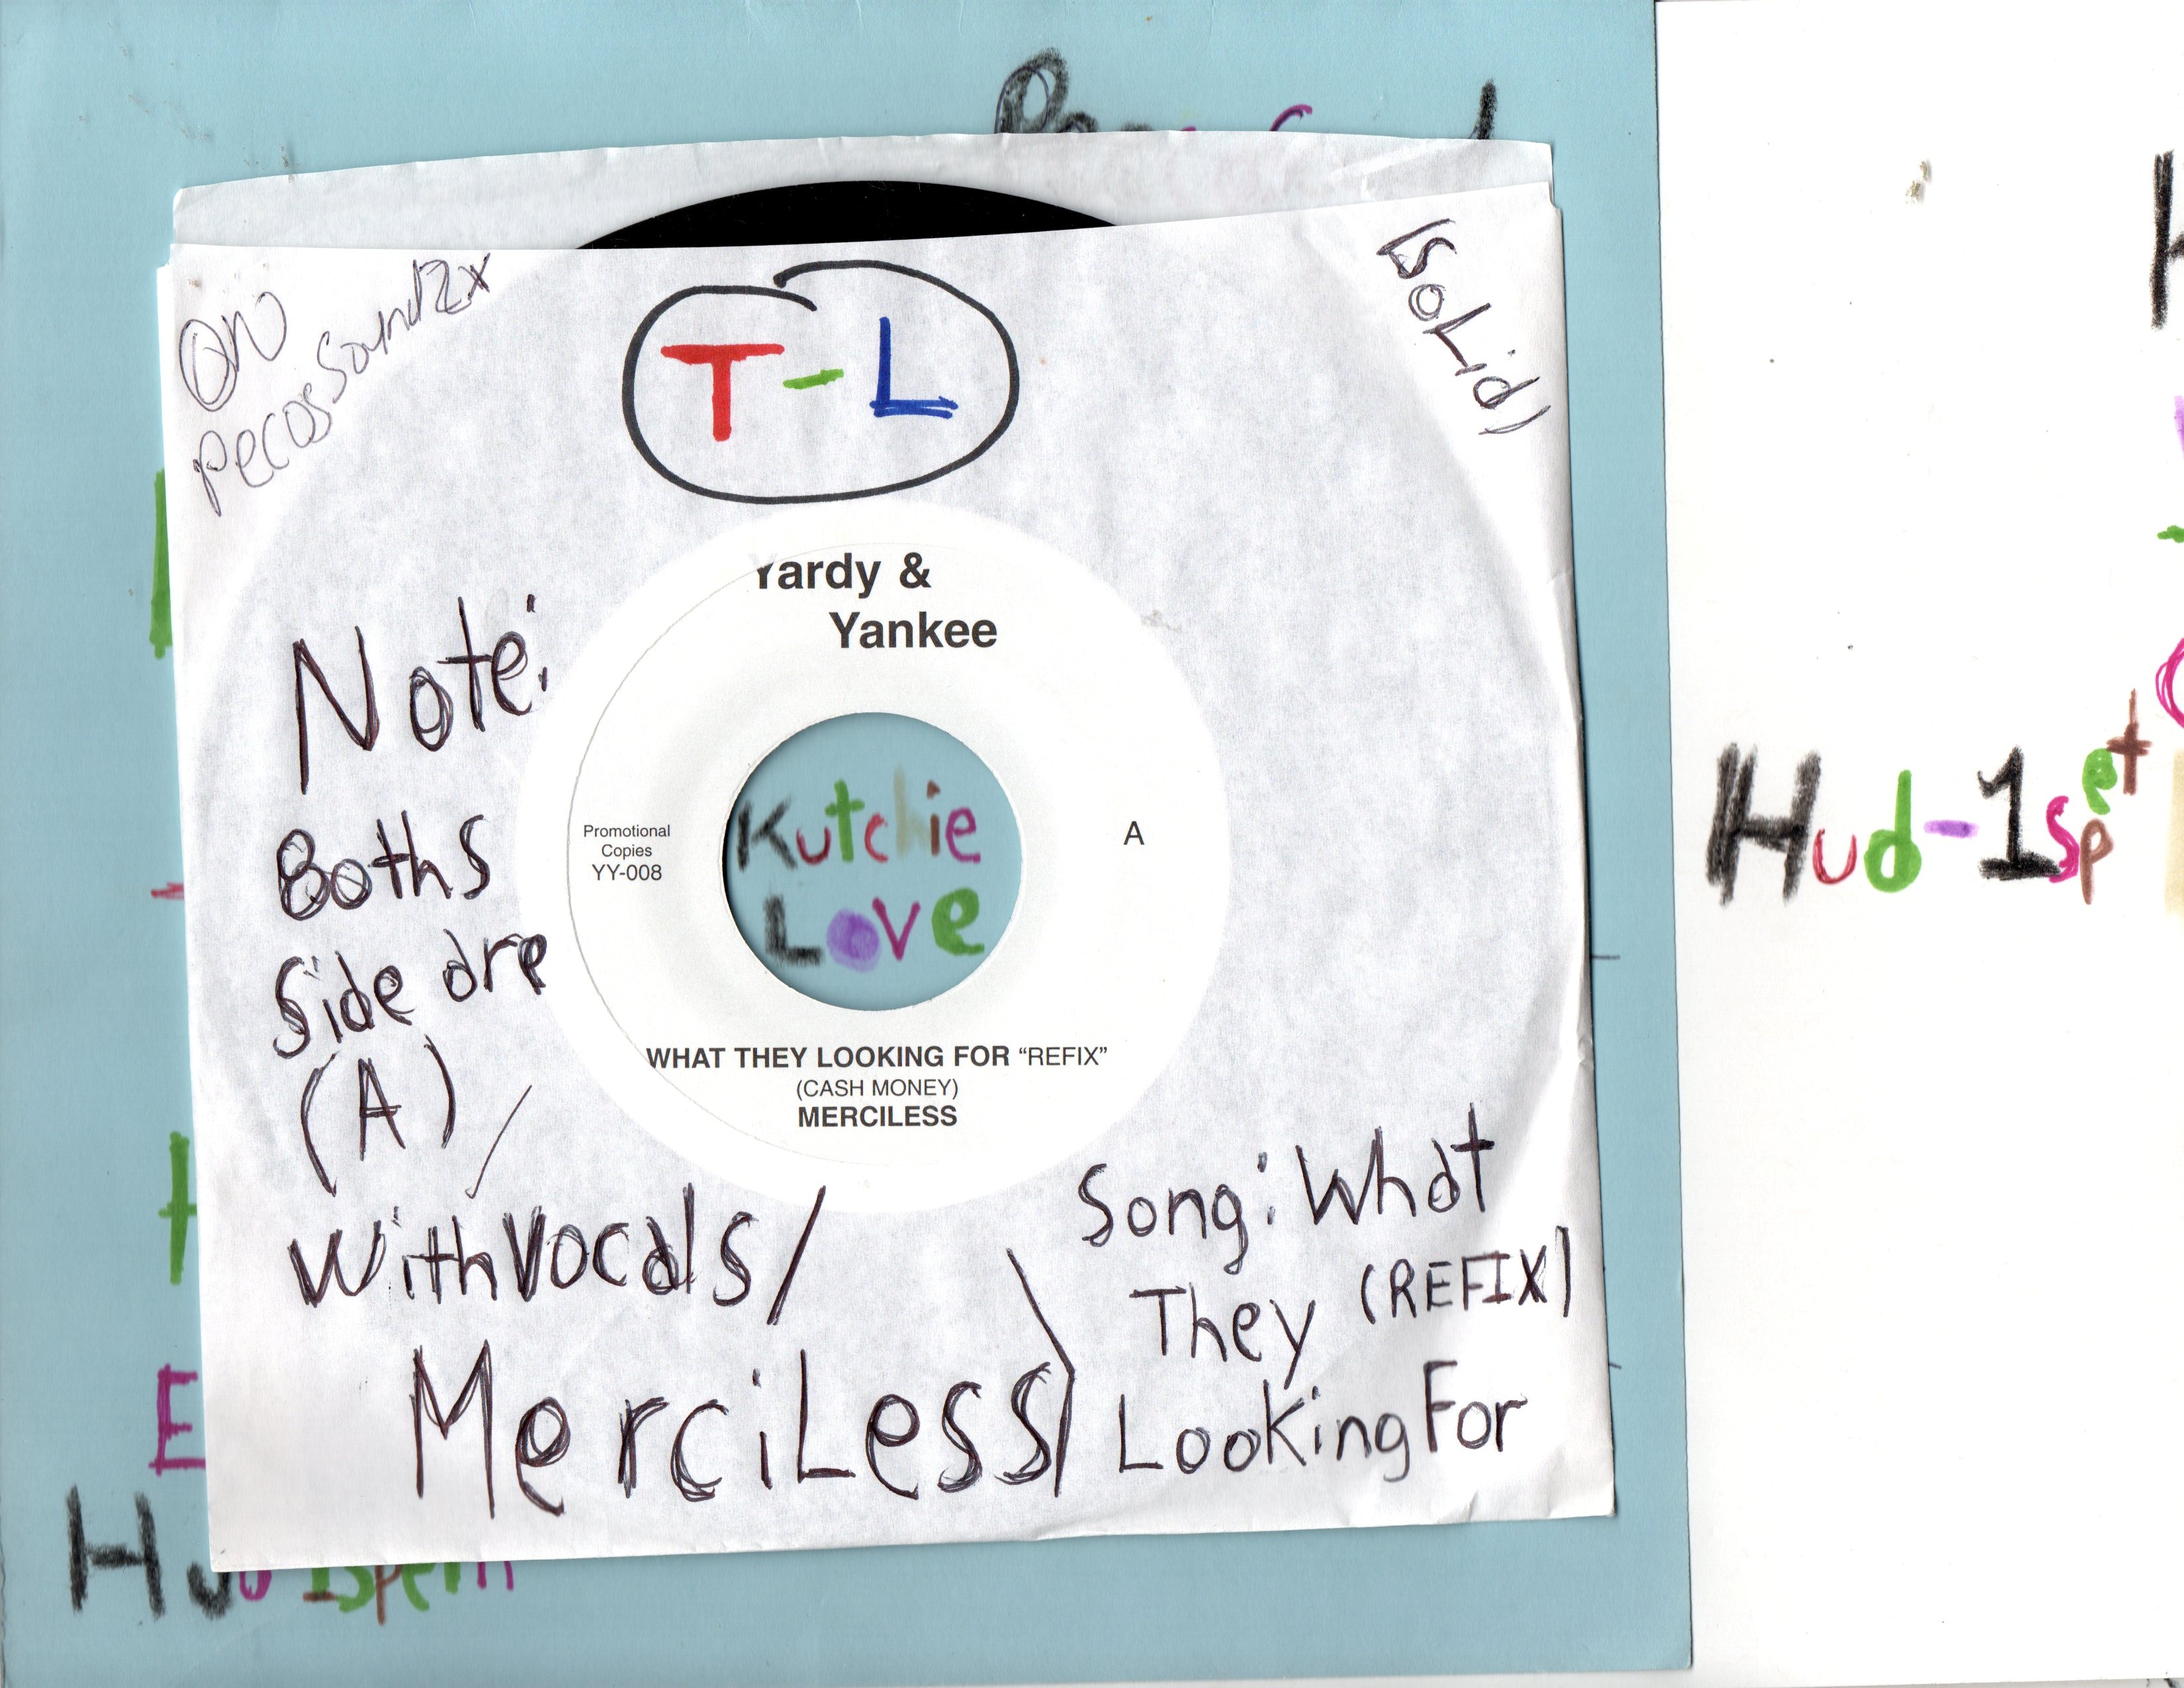 ON
PecosSoundZx
T-L
(SoLid)
Yardy &
Yankee
Note:
Boths
Side are
(A)
With Vocals/
MerciLess
Promotional
Copies
YY-008
A
Kutchie
Love
WHAT THEY LOOKING FOR “REFIX”
(CASH MONEY)
MERCILESS
Song: What
They (REFIX)
Looking For
Hud-1spet